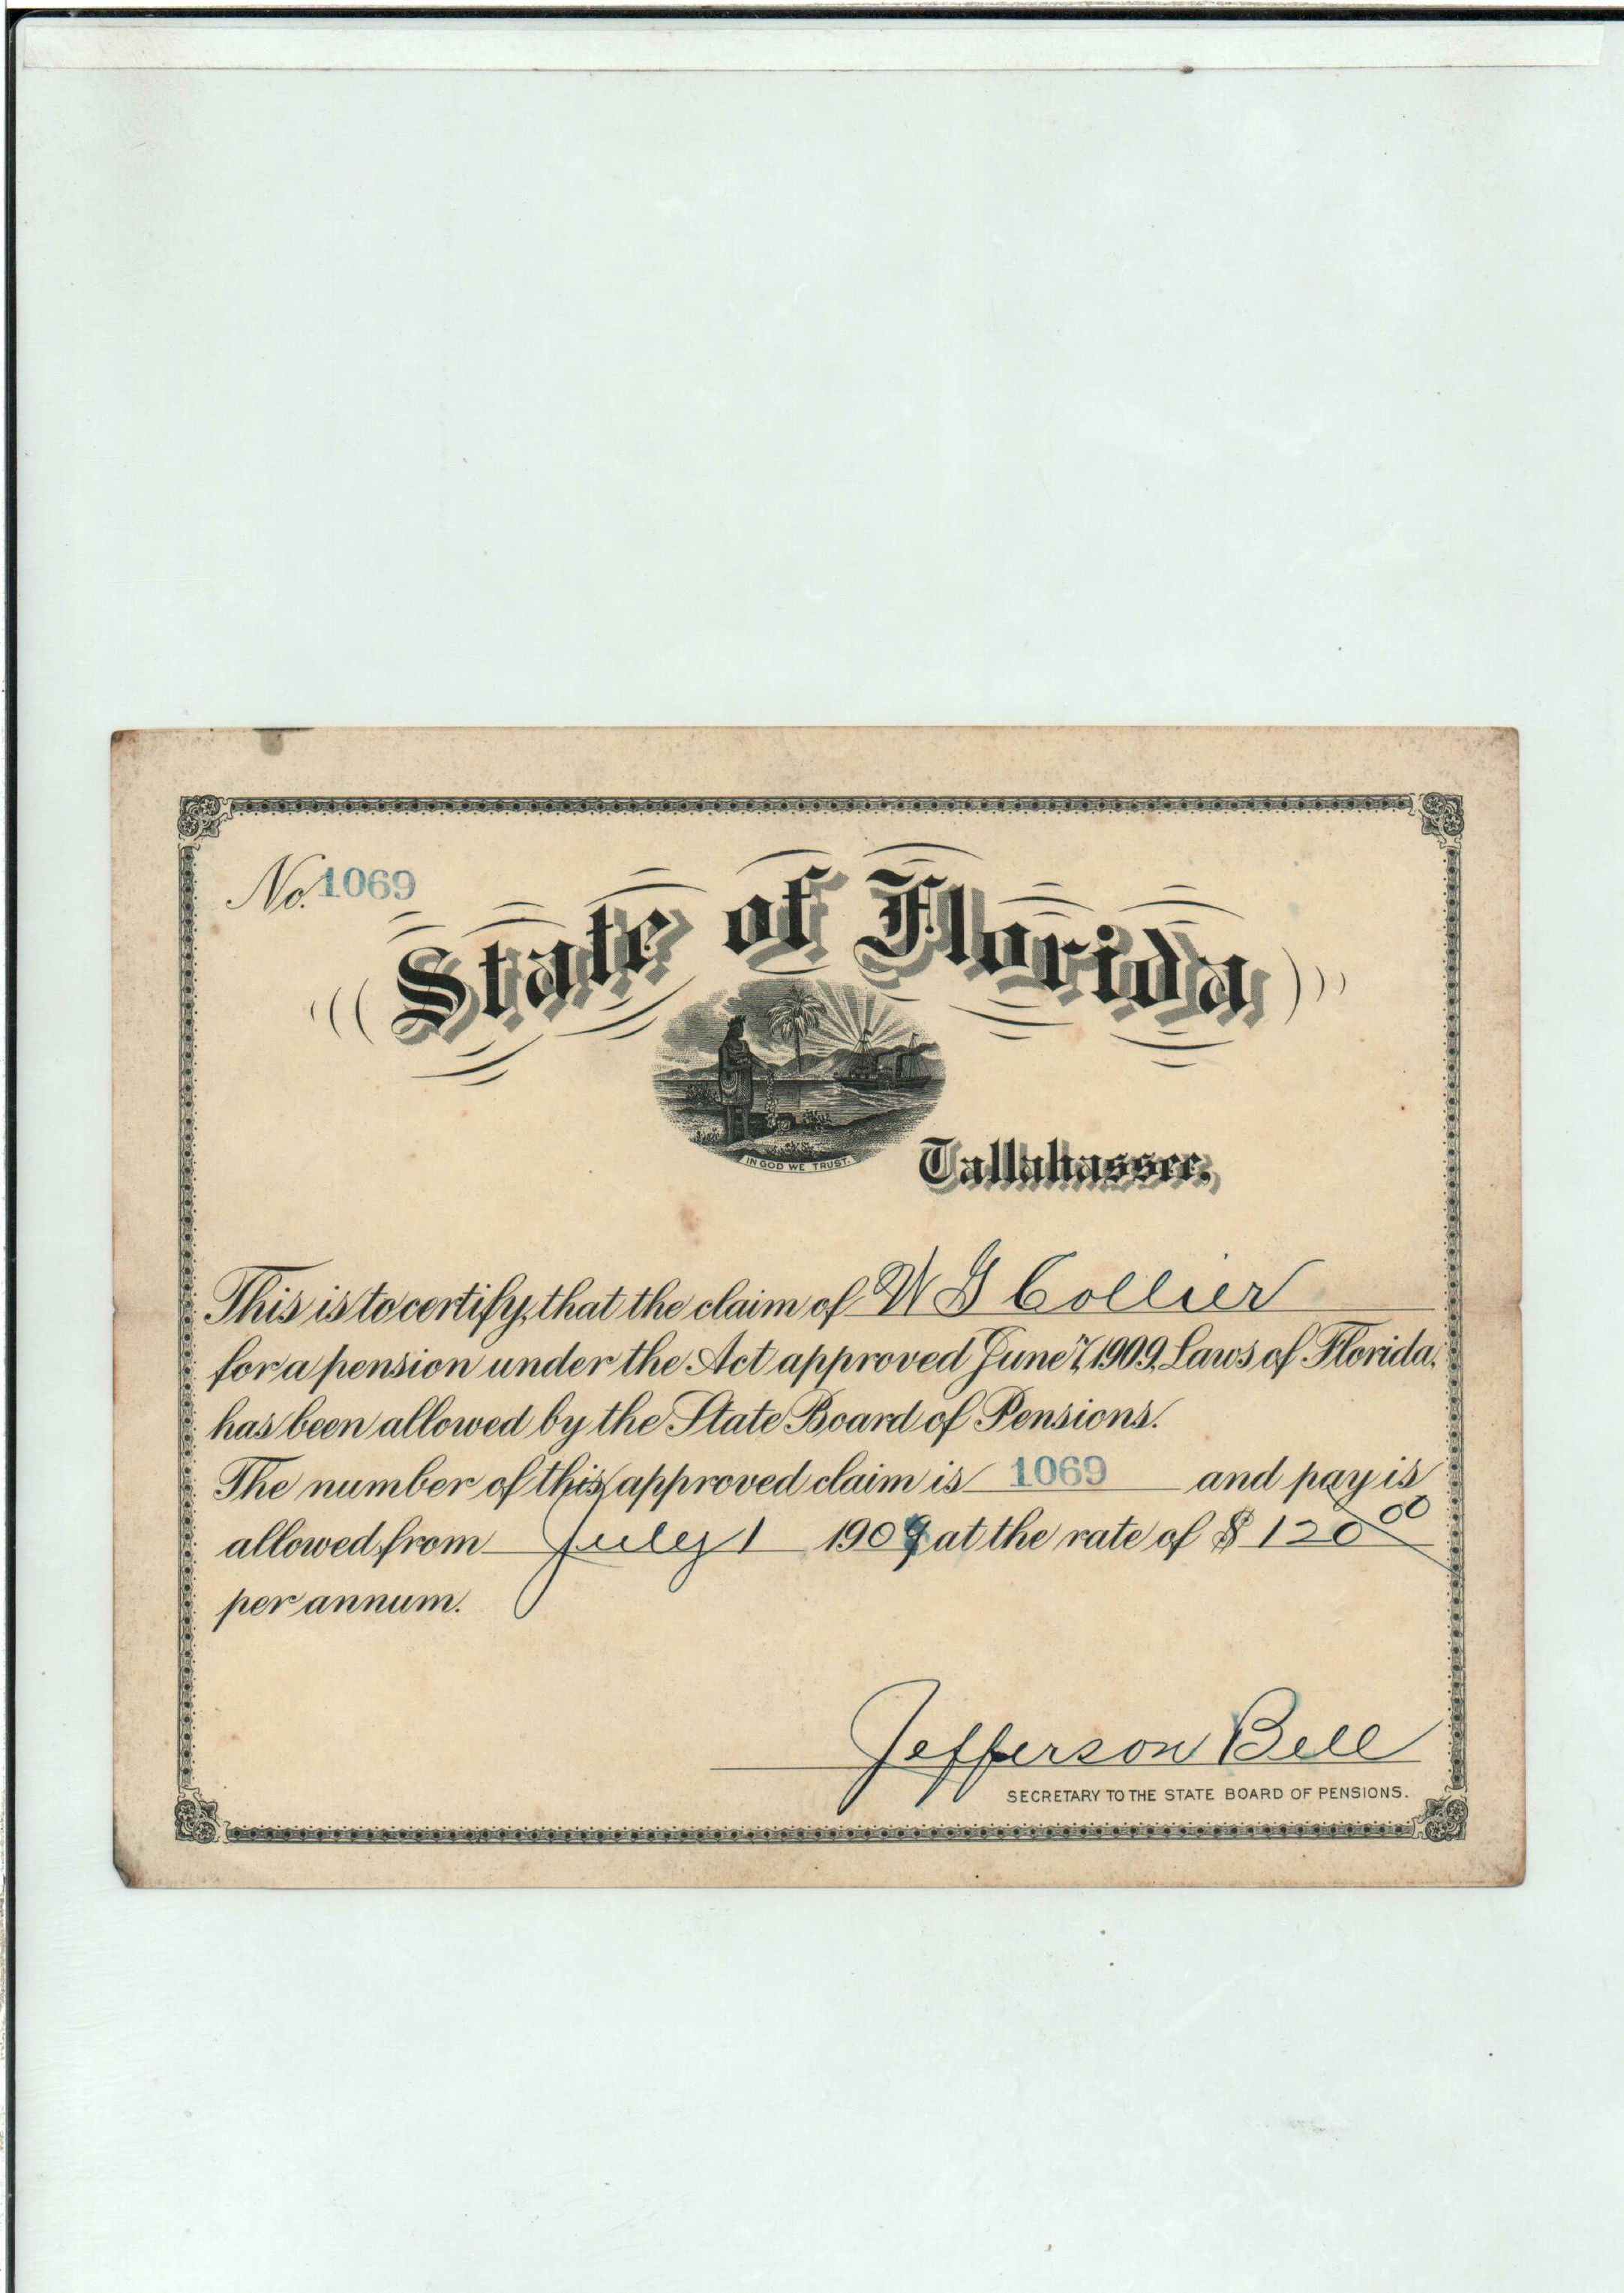 No. 1069
State of Florida
IN GOD WE TRUST.
Tallahassee,
This is to certify, that the claim of W G Collier
for a pension under the Act approved June 7, 1909, Laws of Florida,
has been allowed by the State Board of Pensions.
The number of this approved claim is 1069 and pay is
allowed from July 1 1909 at the rate of $ 120 00
per annum.
Jefferson Bell
SECRETARY TO THE STATE BOARD OF PENSIONS.